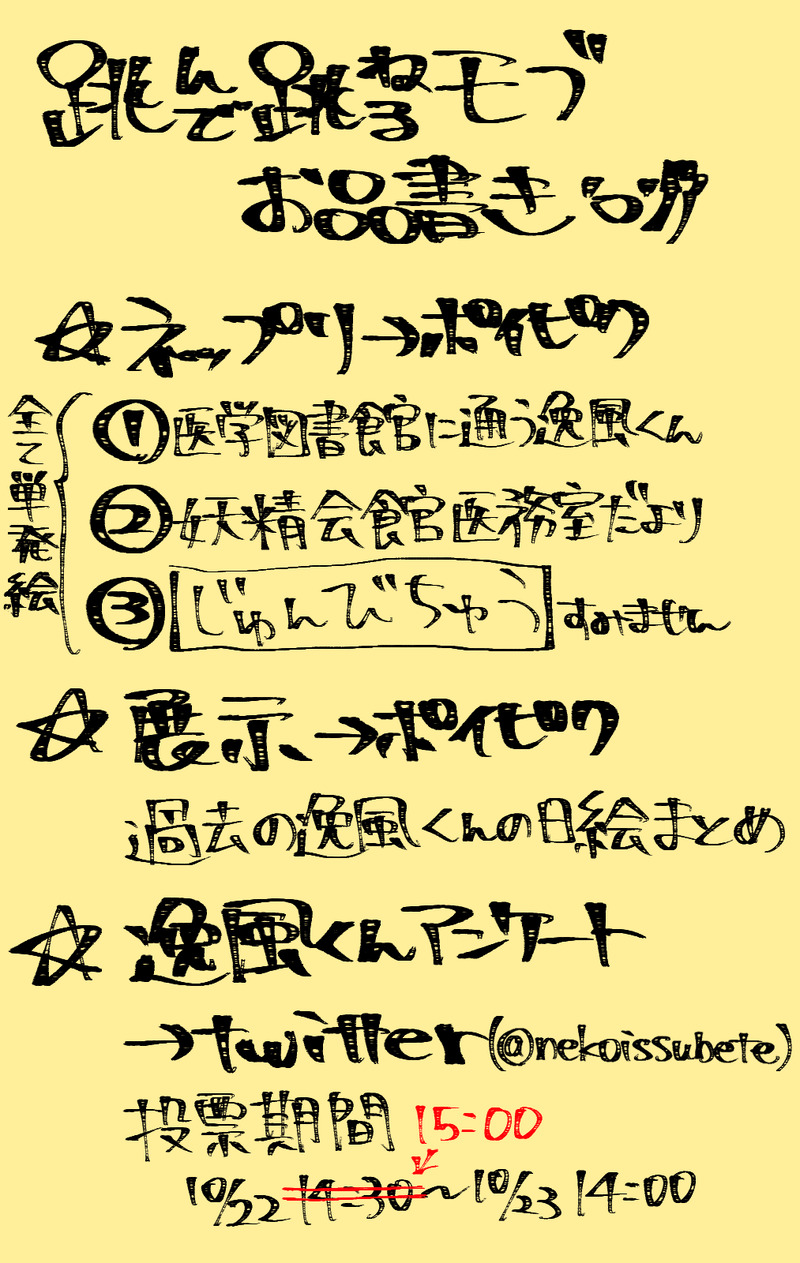 跳んで跳ねるモブ
お品書き
☆ネップリ→ポイピク
全て単発絵
①医学図書館に通う逸風くん
②妖精会館医務室だより
③じゅんびちゅう すみません
☆展示→ポイピク
過去の逸風くんの日絵まとめ
☆逸風くんアンケート
→twitter(@nekoissubete)
投票期間 15:00
10/22 14:30〜10/23 14:00